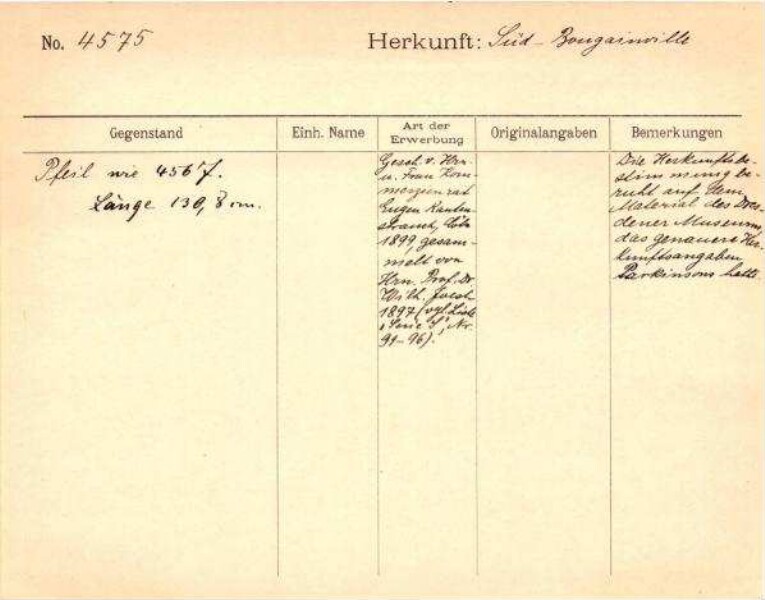 No. 4575 Herkunft: Süd-Bougainville
Gegenstand Einh. Name Art der Erwerbung Originalangaben Bemerkungen
Pfeil wie 4567.
Länge 130,8 cm.
Gesch. v. Hrn.
u. Frau Kom-
merzienrat
Eugen Rauten-
strauch, Cöln
1899, gesam-
melt von
Hrn. Prof. Dr
Wilh. Joest
1897 (vgl. Liste
"Serie S", Nr.
91-96).
Die Herkunftsbe-
stimmung be-
ruht auf dem
Material des Dres-
dener Museums,
das genauere Her-
kunftsangaben
Parkinsons hatte.